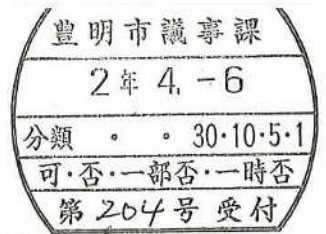 豊明市議事課
2年 4.-6
分類 ・ ・ 30・10・5・1
可・否・一部否・一時否
第204号 受付